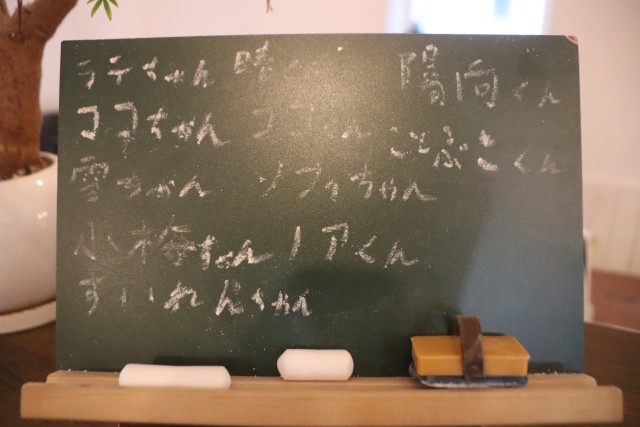 ラテちゃん 晴 陽向くん
ココちゃん ココちゃん ことぶきくん
雪ちゃん ソフィちゃん
小梅ちゃん ノアくん
すいれんくん